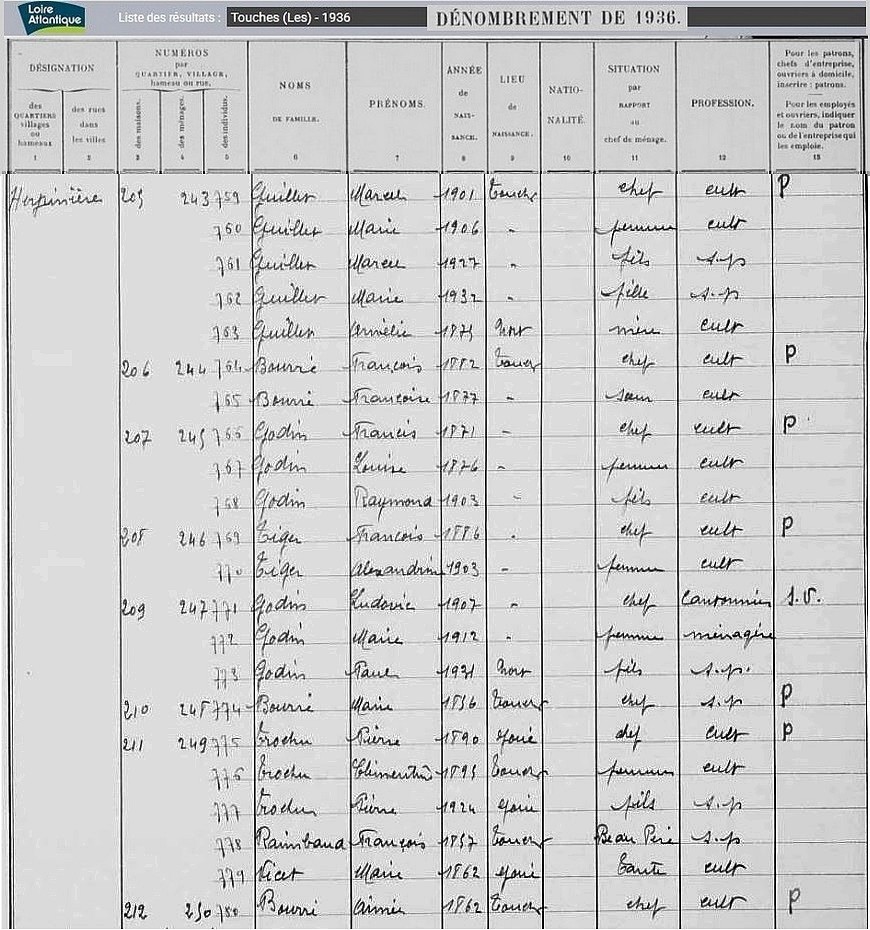 Loire Atlantique Liste des résultats : Touches (Les) - 1936 DÉNOMBREMENT DE 1936.
DÉSIGNATION
des QUARTIERS villages ou hameaux
des rues dans les villes
NUMÉROS par QUARTIER, VILLAGE, hameau ou rue.
des maisons.
des ménages.
des individus.
NOMS DE FAMILLE.
PRÉNOMS.
ANNÉE de NAIS- SANCE.
LIEU de NAISSANCE.
NATIO- NALITÉ.
SITUATION par RAPPORT au chef de ménage.
PROFESSION.
Pour les patrons, chefs d'entreprise, ouvriers à domicile, inscrire : patrons.
Pour les employés et ouvriers, indiquer le nom du patron ou de l'entreprise qui les emploie.
1 2 3 4 5 6 7 8 9 10 11 12 13
Herpinière 205 243 759 Guillet Marcel 1901 Touches chef cult P
760 Guillet Marie 1906 - femme cult
761 Guillet Marcel 1927 - fils s.p
762 Guillet Marie 1932 - fille s.p
763 Guillet Armélie 1875 Nort mère cult
206 244 764 Bourré François 1882 Touches chef cult P
765 Bourré Françoise 1877 - sœur cult
207 245 766 Godin Francis 1871 - chef cult P
767 Godin Louise 1876 - femme cult
768 Godin Raymond 1903 - fils cult
208 246 769 Tiger François 1886 - chef cult P
770 Tiger Alexandrine 1903 - femme cult
209 247 771 Godin Ludovic 1907 - chef Cantonnier S.V.
772 Godin Marie 1912 - femme ménagère
773 Godin Paul 1931 Nort fils s.p.
210 248 774 Bourré Marie 1856 Touches chef s.p P
211 249 775 Trochu Pierre 1890 Joué chef cult P
776 Trochu Clémentine 1895 Touches femme cult
777 Trochu Pierre 1924 Joué fils s.p
778 Raimbaud François 1857 Touches Beau Père s.p
779 Vicet Marie 1862 Joué Tante cult
212 250 780 Bourré Aimée 1862 Touches chef cult P